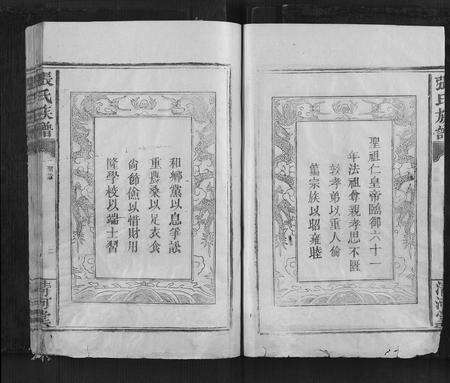 張氏族譜
聖祖仁皇帝臨御六十一
年法祖尊親孝思不匱
敦孝弟以重人倫
篤宗族以昭雍睦
清河堂
張氏族譜
和鄉黨以息爭訟
重農桑以足衣食
尚節儉以惜財用
隆學校以端士習
清河堂